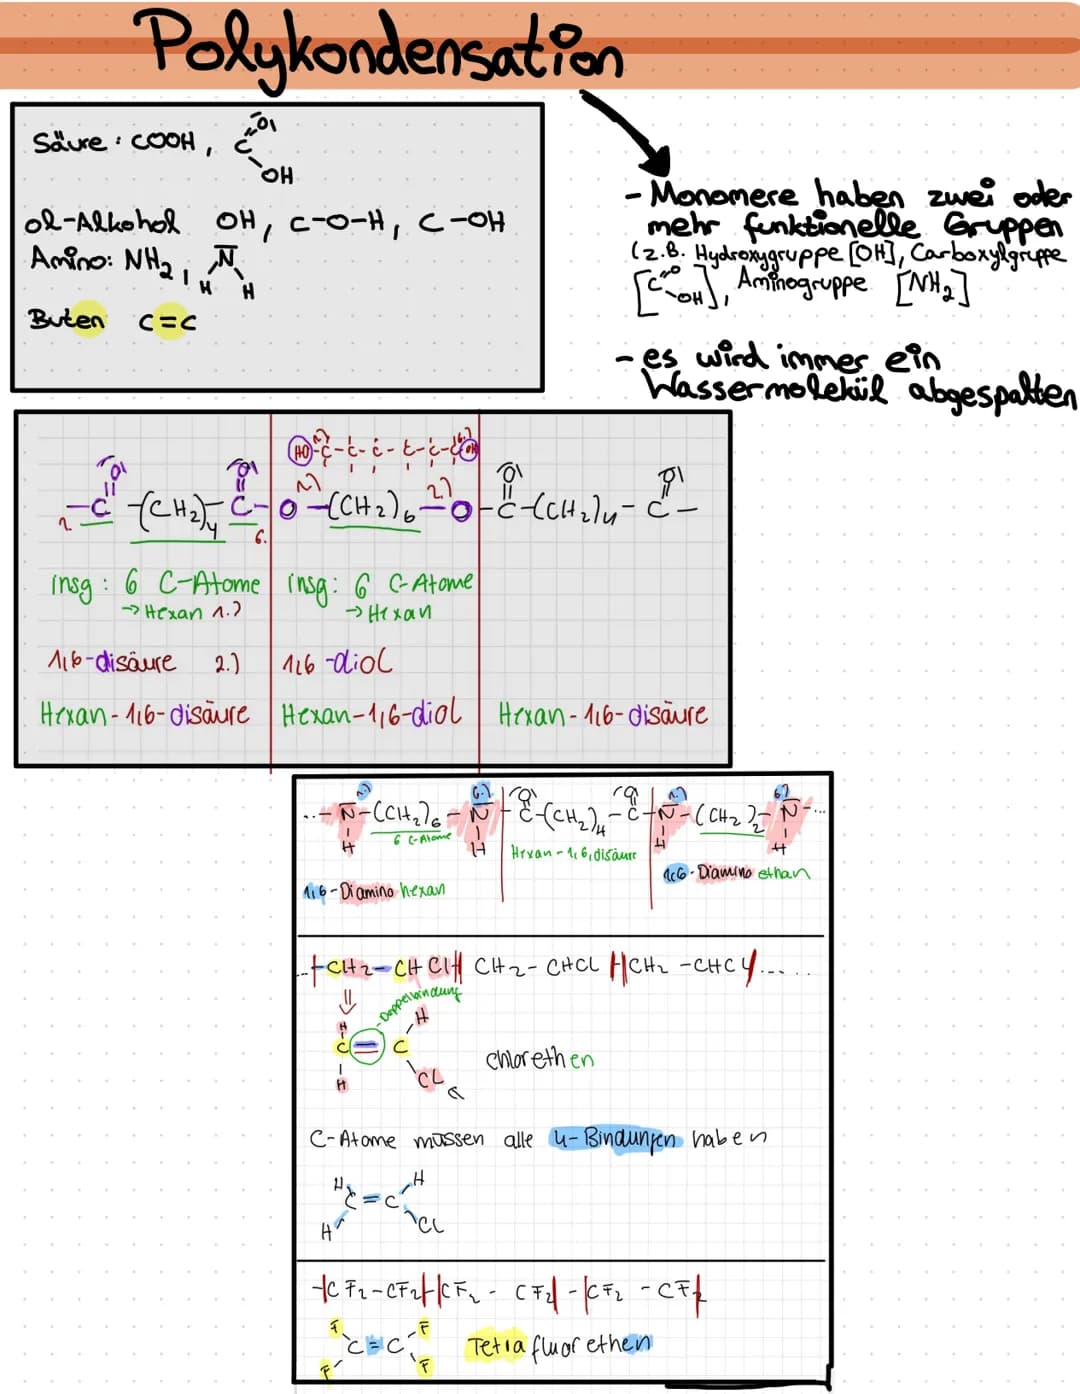 Polykondensation
Säure: COOH, C=O
OH
ol-Alkohol OH, C-O-H, C-OH
Amino: NH2, N
H H
Buten C=C
- Monomere haben zwei oder
mehr funktionelle Gruppen
(z.B. Hydroxygruppe [OH], Carboxylgruppe
[C=O OH], Aminogruppe [NH2]
- es wird immer ein
Wassermolekül abgespalten
HO-C-C-C-C-C-C-OH
-C-(CH2)4-C-O-(CH2)6-O-C-(CH2)4-C-
insg: 6 C-Atome insg: 6 C-Atome
→Hexan 1.) →Hexan
1,6-disäure 2.) 1,6-diol
Hexan-1,6-disäure Hexan-1,6-diol Hexan-1,6-disäure
1.) 6.) 1.) 6.)
...-N-(CH2)6-N-C-(CH2)4-C-N-(CH2)2-N-...
H 6 C-Atome H H H
Hexan-1,6,disäure
1,6-Diaminohexan 1,6-Diamino ethan
...CH2-CHCl CH2-CHCl CH2-CHCl...
Doppelbindung
H H
C = C
H CL
chlorethen
C-Atome müssen alle 4-Bindungen haben
H H
C=C
H CL
CF2-CF2 CF2-CF2-CF2-CF2
F F
C=C Tetrafluorethen
F F